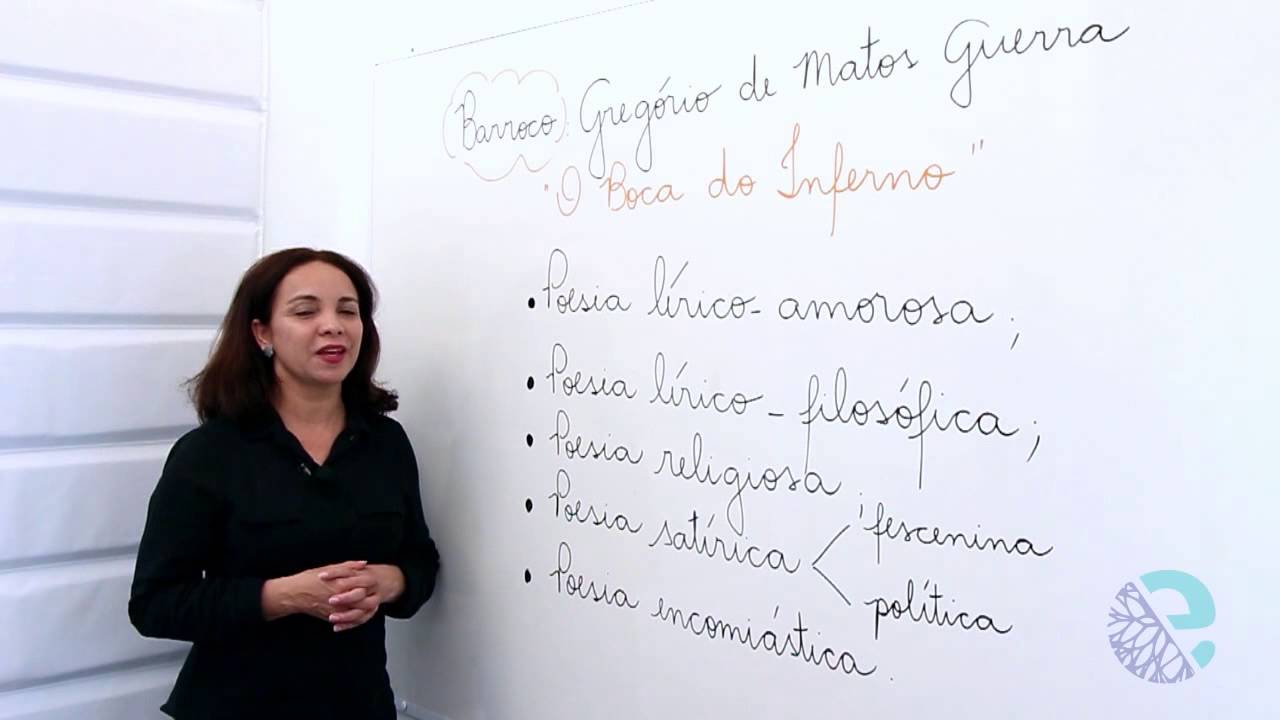 Barroco: Gregório de Matos Guerra
"O Boca do Inferno"
• Poesia lírico-amorosa;
• Poesia lírico-filosófica;
• Poesia religiosa;
• Poesia satírica < fescenina
política
• Poesia encomiástica.